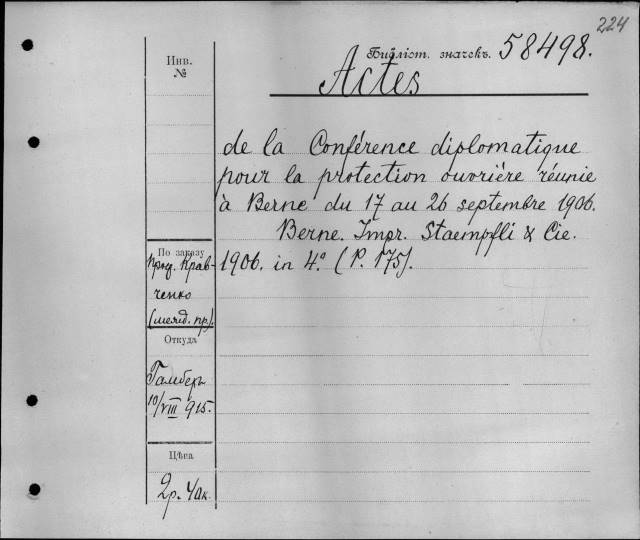 224
Библіот. значекъ. 58498.
Инв.
№
Actes
de la Conférence diplomatique
pour la protection ouvrière réunie
à Berne du 17 au 26 septembre 1906.
Berne. Impr. Staempfli & Cie.
1906. in 4º. (P. 175).
По заказу
проф. Крав-
ченко
(межд. пр).
Откуда
Гамберъ
10/VIII 915.
Цѣна
2р. 40к.